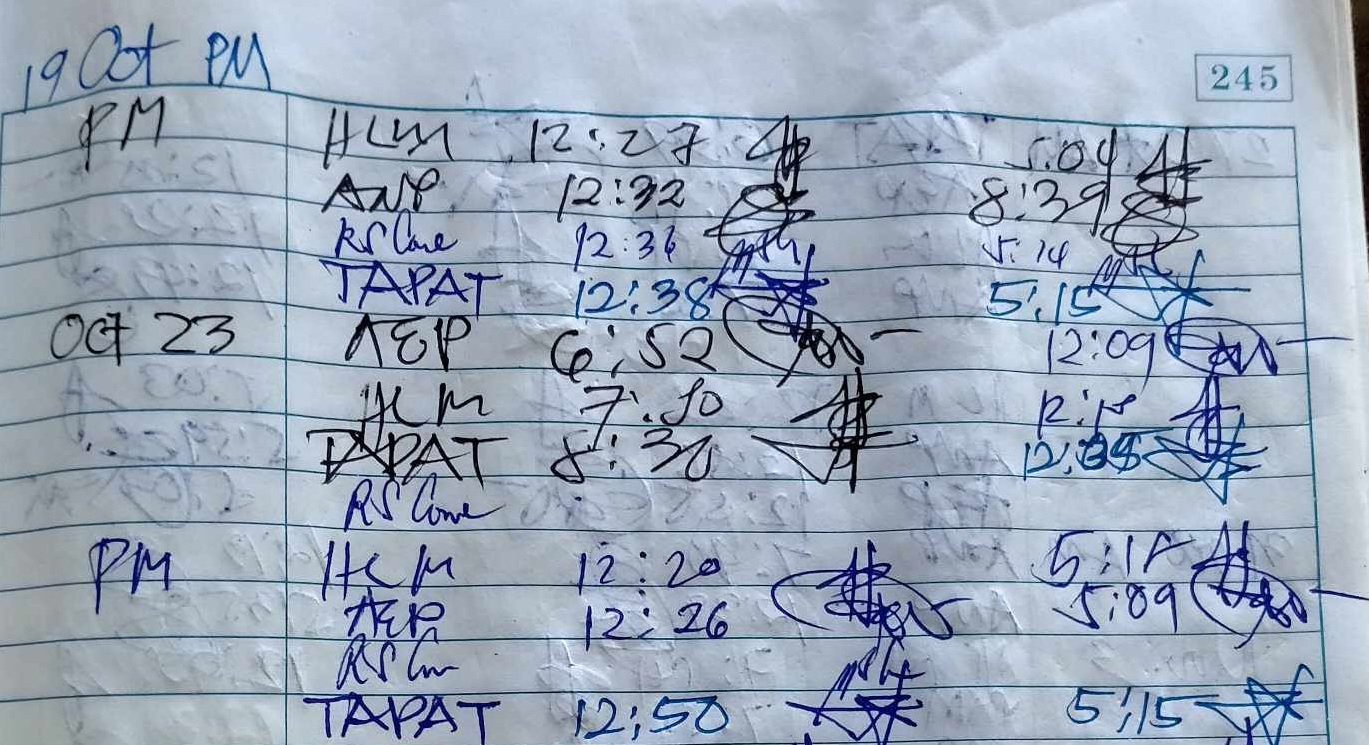 19 Oct PM
245
PM HCM 12:27 5:04
12:32 8:39
RS Cone 12:36 5:14
TAPAT 12:38 5:15
Oct 23 AEP 6:52 12:09
HCM 7:50
TAPAT 8:30 12:
RS Cone
PM HCM 12:20 5:
AEP 12:26 5:09
RS
TAPAT 12:50 5:15